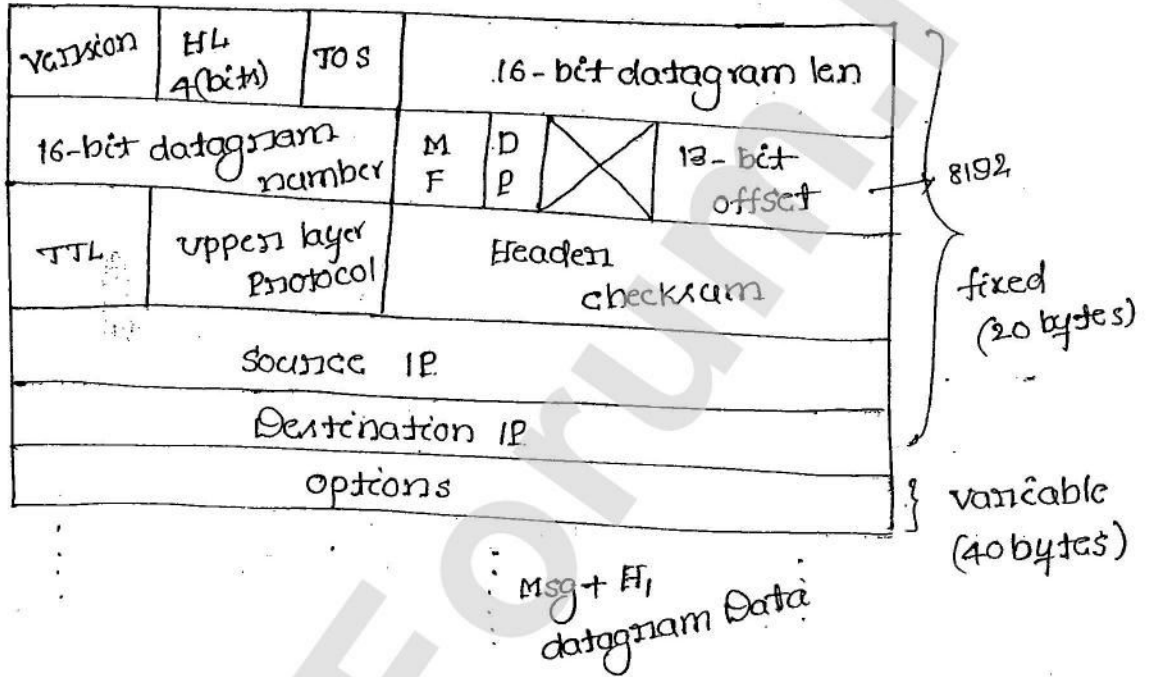 Version
HL
4(bits)
TOS
16-bit datagram len
16-bit datagram
number
M
F
D
P
13-bit
offset
8192
TTL
upper layer
Protocol
Header
checksum
fixed
(20 bytes)
Source IP
Destination IP
options
variable
(40 bytes)
Msg + H1
datagram Data
Forum.